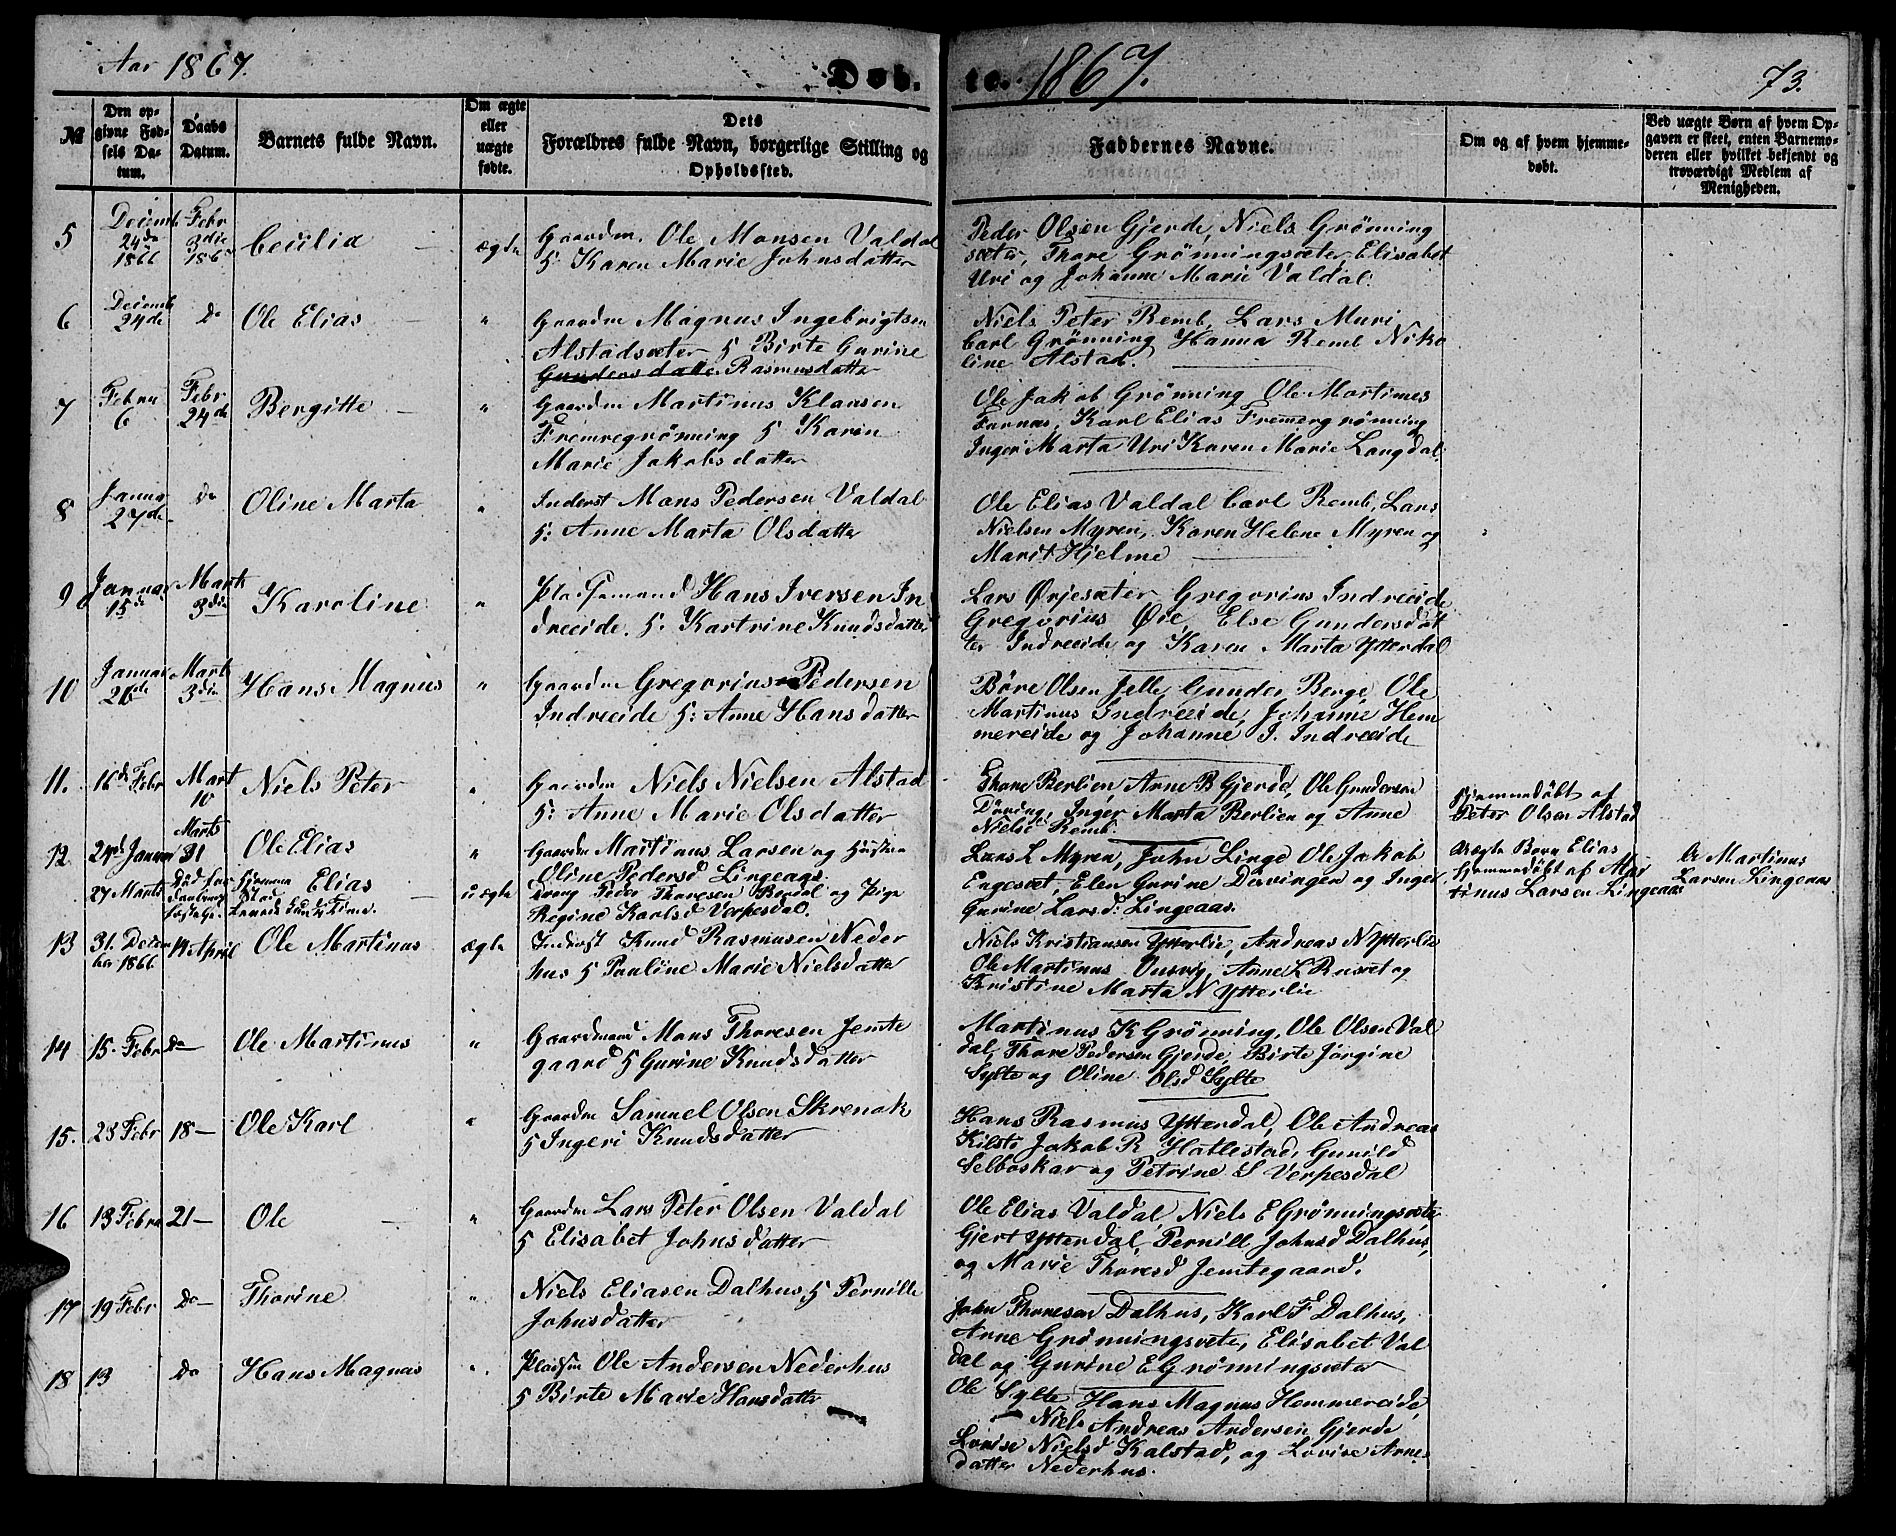 Aar 1867.
Døb-
te. 1867.
73.
№
Den op-
givne Fød-
sels Da-
tum.
Daabs
Datum.
Barnets fulde Navn.
Om ægte
eller
uægte
fødte.
Dets
Forældres fulde Navn, borgerlige Stilling og
Opholdssted.
Faddernes Navne.
Om og af hvem hjemme-
døbt.
Ved uægte Børn af hvem Op-
gaven er skeet, enten Barnemo-
deren eller hvilket bekjendt og
troværdigt Medlem af
Menigheden.
5
Decemb
24de
1866
Febr
3die
1867
Cecilia
ægte
Gaardm. Ole Monsen Valdal
H: Karen Marie Johnsdatter
Peder Olsen Gjerde, Niels Grönning
sæter, Thore Grönningsæter, Elisabet
Uri og Johanne Marie Valdal.
6
Decemb
24de
Do
Ole Elias
"
Gaardm Magnus Ingebrigtsen
Alstadsæter H Birte Gurine
Gundersdatter Rasmusdatter
Niels Peter Remb, Lars Muri
Carl Grönning Hanna Remb Niko
line Alstad.
7
Febru
6
Febr
24de
Bergitte
"
Gaardm Martinus Klausen
Fremregrönning H Karen
Marie Jakobsdatter
Ole Jakob Grönning Ole Martinus
Furnæs, Karl Elias Fremergrönning
Inger Marta Uri Karen Marie Langdal.
8
Janua
27de
Do
Oline Marta
"
Inderst Mons Pedersen Valdal
H: Anne Marta Olsdatter
Ole Elias Valdal Carl Remb, Lars
Nielsen Myren, Karen Helene Myren og
Marit Hjelme
9
Januar
15de
Marts
3die
Karoline
"
Pladsemand Hans Iversen In
dreeide. H: Kartrine Knudsdatter
Lars Ørjesæter Gregorius Indreeide
Gregorius Øie, Else Gundersdat
ter Indreeide og Karen Marta Ytterdal
10
Januar
26de
Marts
3die
Hans Magnus
"
Gaardm Gregorius Pedersen
Indreeide H: Anne Hansdatter
Böre Olsen Jelle, Gunder Berge, Ole
Martinus Indreeide, Johanne Hem
mereide og Johanne I. Indreeide
11.
16de Febr
Mart
10
Niels Peter
"
Gaardm Niels Nielsen Alstad
H: Anne Marie Olsdatter
Thore Berlien, Anne B Gjerde, Ole Gundersen
Döving, Inger Marta Berlien og Anne
Nielsd Remb.
Hjemmedøbt af
Peter Olsen Alstad
12
24de Januar
Marts
31
Ole Elias
"
Gaardm Martinus Larsen og Hustru
Oline Pedersd Lingeaas.
Lars L Myren, John Linge Ole Jakob
Engeset, Elen Gurine Dövingen og Inger
Gurine Larsd: Lingeaas.
27 Marts
Elias
uægte
Dreng Peder Thoresen Berdal og Pige
Regine Karlsd Verpesdal.
Uægte Born Elias
hjemmedøbt af Mar
tinus Larsen Lingeaas
Martinus
Larsen Lingeaas
13
31. Decem
ber 1866
14 April
Ole Martinus
ægte
Inderst Knud Rasmusen Neder
hus H Pauline Marie Nielsdatter
Niels Kristiansen Ytterlie, Andreas N Ytterlie
Ole Martinus Onsvig, Anne L Ruset og
Kristine Marta N Ytterlie
14
15. Febr
Do
Ole Martinus
"
Gaardmand Mons Thoresen Jemte
gaard H Gurine Knudsdatter
Martinus K Grönning, Ole Olsen Val
dal, Thore Pedersen Gjerde, Birte Jörgine
Sylte og Oline Olsd Sylte
15.
23 Febr
18 —
Ole Karl
"
Gaardm Samuel Olsen Skrenak
H Ingeri Knudsdatter
Hans Rasmus Ytterdal, Ole Andreas
Kilsti Jakob R Hatlestad, Gunild
Selboskar og Petrine S Verpesdal
16
13 Febru
21 —
Ole
"
Gaardm Lars Peter Olsen Valdal
H Elisabet Johnsdatter
Ole Elias Valdal Niels E Grönningsæter
Gjert Ytterdal, Pernill Johnsd Dalhus,
og Marie Thoresd Jemtegaard.
17
19 Febr
Do —
Thorine
"
Niels Eliasen Dalhus, H Pernille
Johnsdatter
John Thoresen Dalhus, Karl F Dalhus,
Anne Grönningsæte, Elisabet Val
dal og Gurine E Grönningsæter
18
13
Do
Hans Magnus
"
Pladsm Ole Andersen Nederhus
H Birte Marie Hansdatter
Ole Sylte, Hans Magnus Hemmereide,
Niels Andreas Andersen Gjerde
Lovise Nielsd Kalstad, og Lovise Arnes
datter Nederhus.